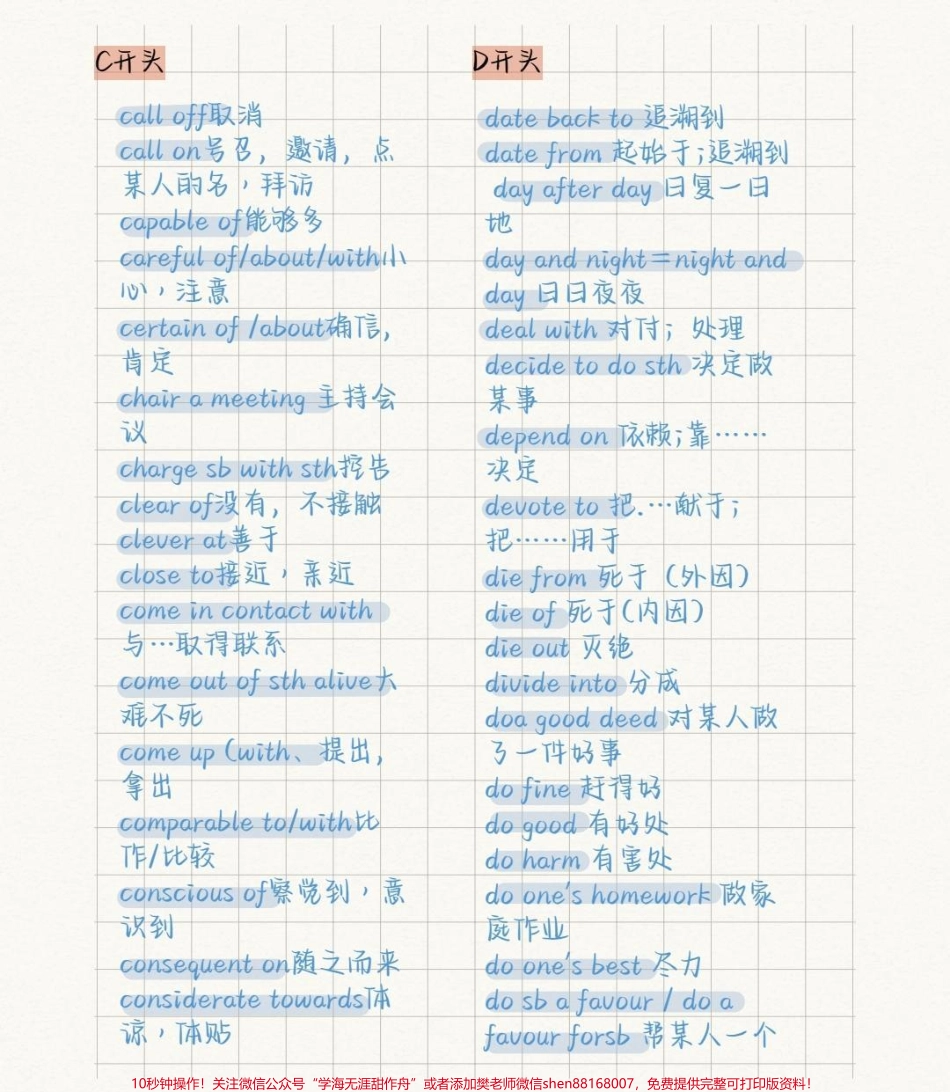 C开头
call off取消
call on号召，邀请，点
某人的名，拜访
capable of能够多
careful of/about/with小
心，注意
certain of /about确信，
肯定
chair a meeting 主持会
议
charge sb with sth控告
clear of没有，不接触
clever at善于
close to接近，亲近
come in contact with
与…取得联系
come out of sth alive大
难不死
come up (with、提出，
拿出
comparable to/with比
作/比较
conscious of察觉到，意
识到
consequent on随之而来
considerate towards体
谅，体贴
D开头
date back to 追溯到
date from 起始于;追溯到
day after day 日复一日
地
day and night=night and
day 日日夜夜
deal with 对付；处理
decide to do sth 决定做
某事
depend on 依赖;靠……
决定
devote to 把.…献于；
把……用于
die from 死于（外因）
die of 死于(内因)
die out 灭绝
divide into 分成
doa good deed 对某人做
了一件好事
do fine 赶得好
do good 有好处
do harm 有害处
do one's homework 做家
庭作业
do one's best 尽力
do sb a favour / do a
favour forsb 帮某人一个
10秒钟操作！关注微信公众号“学海无涯甜作舟”或者添加樊老师微信shen88168007，免费提供完整可打印版资料！